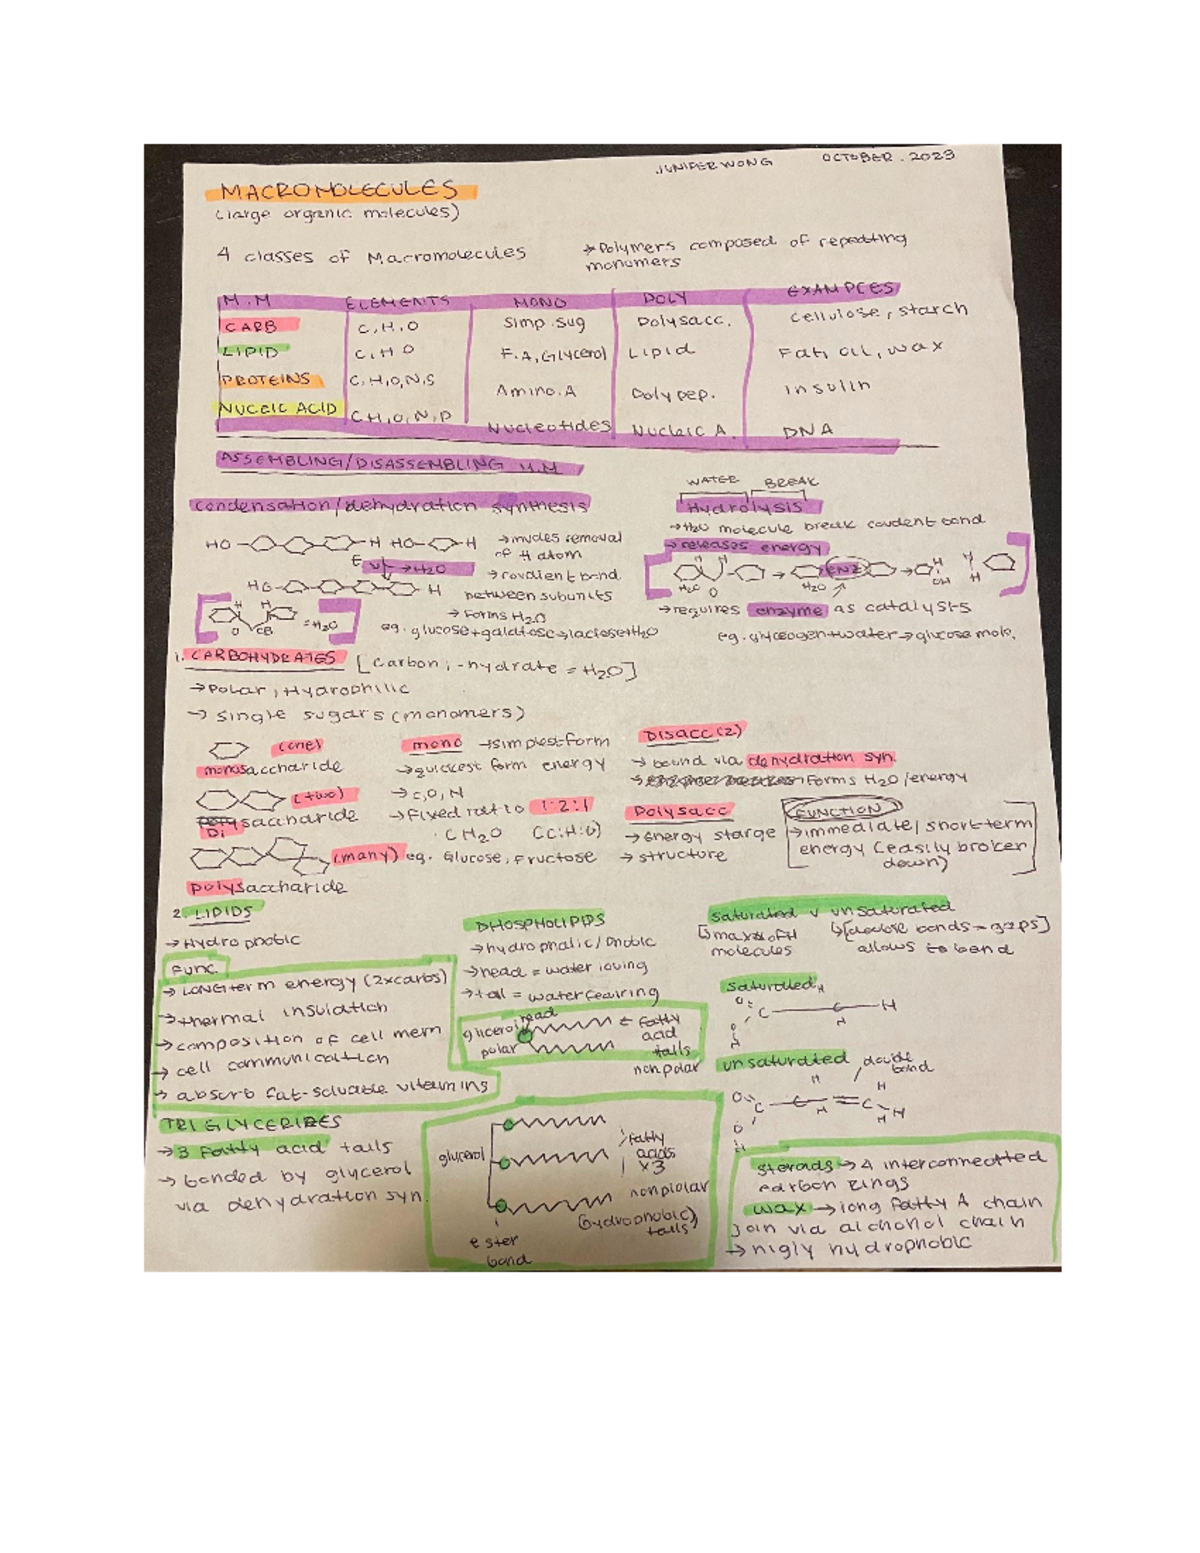 JUNIPER WONG OCTOBER. 2023
MACROMOLECULES
(large organic molecules)
4 classes of Macromolecules
* Polymers composed of repeating
monomers
M.M ELEMENTS MONO POLY EXAMPLES
CARB C, H, O Simp. Sug Polysacc. Cellulose, starch
LIPID C, H O F.A, Glycerol Lipid Fat, oil, wax
PROTEINS C, H, O, N, S Amino. A Polypep. insulin
NUCLEIC ACID C H, O, N, P Nucleotides Nucleic A. DNA
ASSEMBLING/DISASSEMBLING M.M
condensation/dehydration synthesis
HO H HO H
→H2O
HO H
H H
O = H2O
removal
of H atom
→covalent bond
between subunits
→ Forms H2O
eg. glucose+galatose→lactose+H2O
WATER BREAK
Hydrolysis
→H2O molecule break covalent bond
→releases energy
O H2O ENZ OH H H
→requires enzyme as catalysts
eg. glycogen+water→glucose mole.
1. CARBOHYDRATES [carbon, -hydrate = H2O]
→Polar, Hydrophilic
→ single sugars (monomers)
(one)
monosaccharide
(two)
Disaccharide
(many)
polysaccharide
mono →simplest form
→quickest form energy
→C, O, H
→Fixed ratio 1:2:1
CH2O (C:H:O)
eg. Glucose, Fructose
Disacc (2)
→ bound via dehydration syn.
→ Forms H2O/energy
Polysacc
→energy storge
→ structure
FUNCTION
→immediate/short-term
energy (easily broken
down)
2. LIPIDS
→Hydrophobic
Func.
→ LONG term energy (2xcarbs)
→thermal insulation
→composition of cell mem
→ cell communication
→ absorb fat-soluable vitamins
PHOSPHOLIPIDS
→hydrophalic/phobic
→head = water loving
→tail = water fearing
head
polar
← fatty
acid
tails
nonpolar
saturated v unsaturated
max # of H
molecules
↳[double bonds = gaps]
allows to bend
saturated
H
O C H
O H
H
unsaturated double
bond
H H
O C C H
H H
O
H
TRIGLYCERIDES
→3 Fatty acid tails
→ bonded by glycerol
via dehydration syn.
glycerol
ester
bond
fatty
acids
x3
nonplolar
(hydrophobic)
tails
steroids → 4 interconnected
carbon rings
wax → long fatty A chain
Join via alchohol chain
→ higly hydrophobic